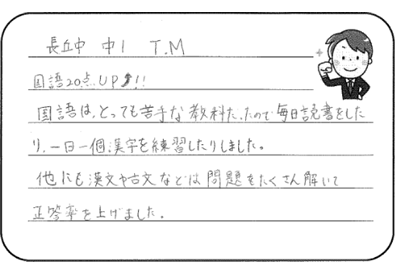 長丘中 中1 T.M
国語20点UP!!
国語は、とっても苦手な教科だったので毎日読書をした
り、一日一個、漢字を練習したりしました。
他にも漢文や古文などは問題をたくさん解いて
正答率を上げました。